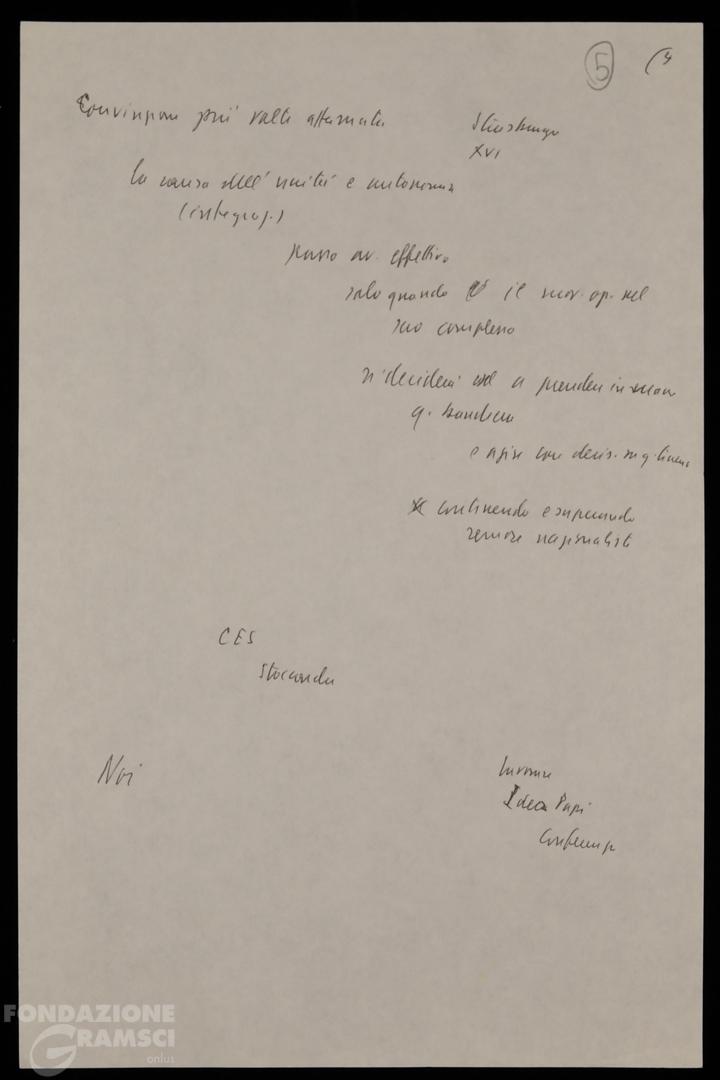 5 (4
Convinzione più volte affermata
Strasburgo
XVI
la causa dell'unità e autonomia
(integraz.)
passo av. effettivo
solo quando il mov. op. nel
suo complesso
si deciderà a prendere in mano
q. bandiera
e agire con decis. in q. linea
contenendo e superando
remore nazionalisti
CES
Stoccarda
Noi
Idea Papi
FONDAZIONE
GRAMSCI
onlus